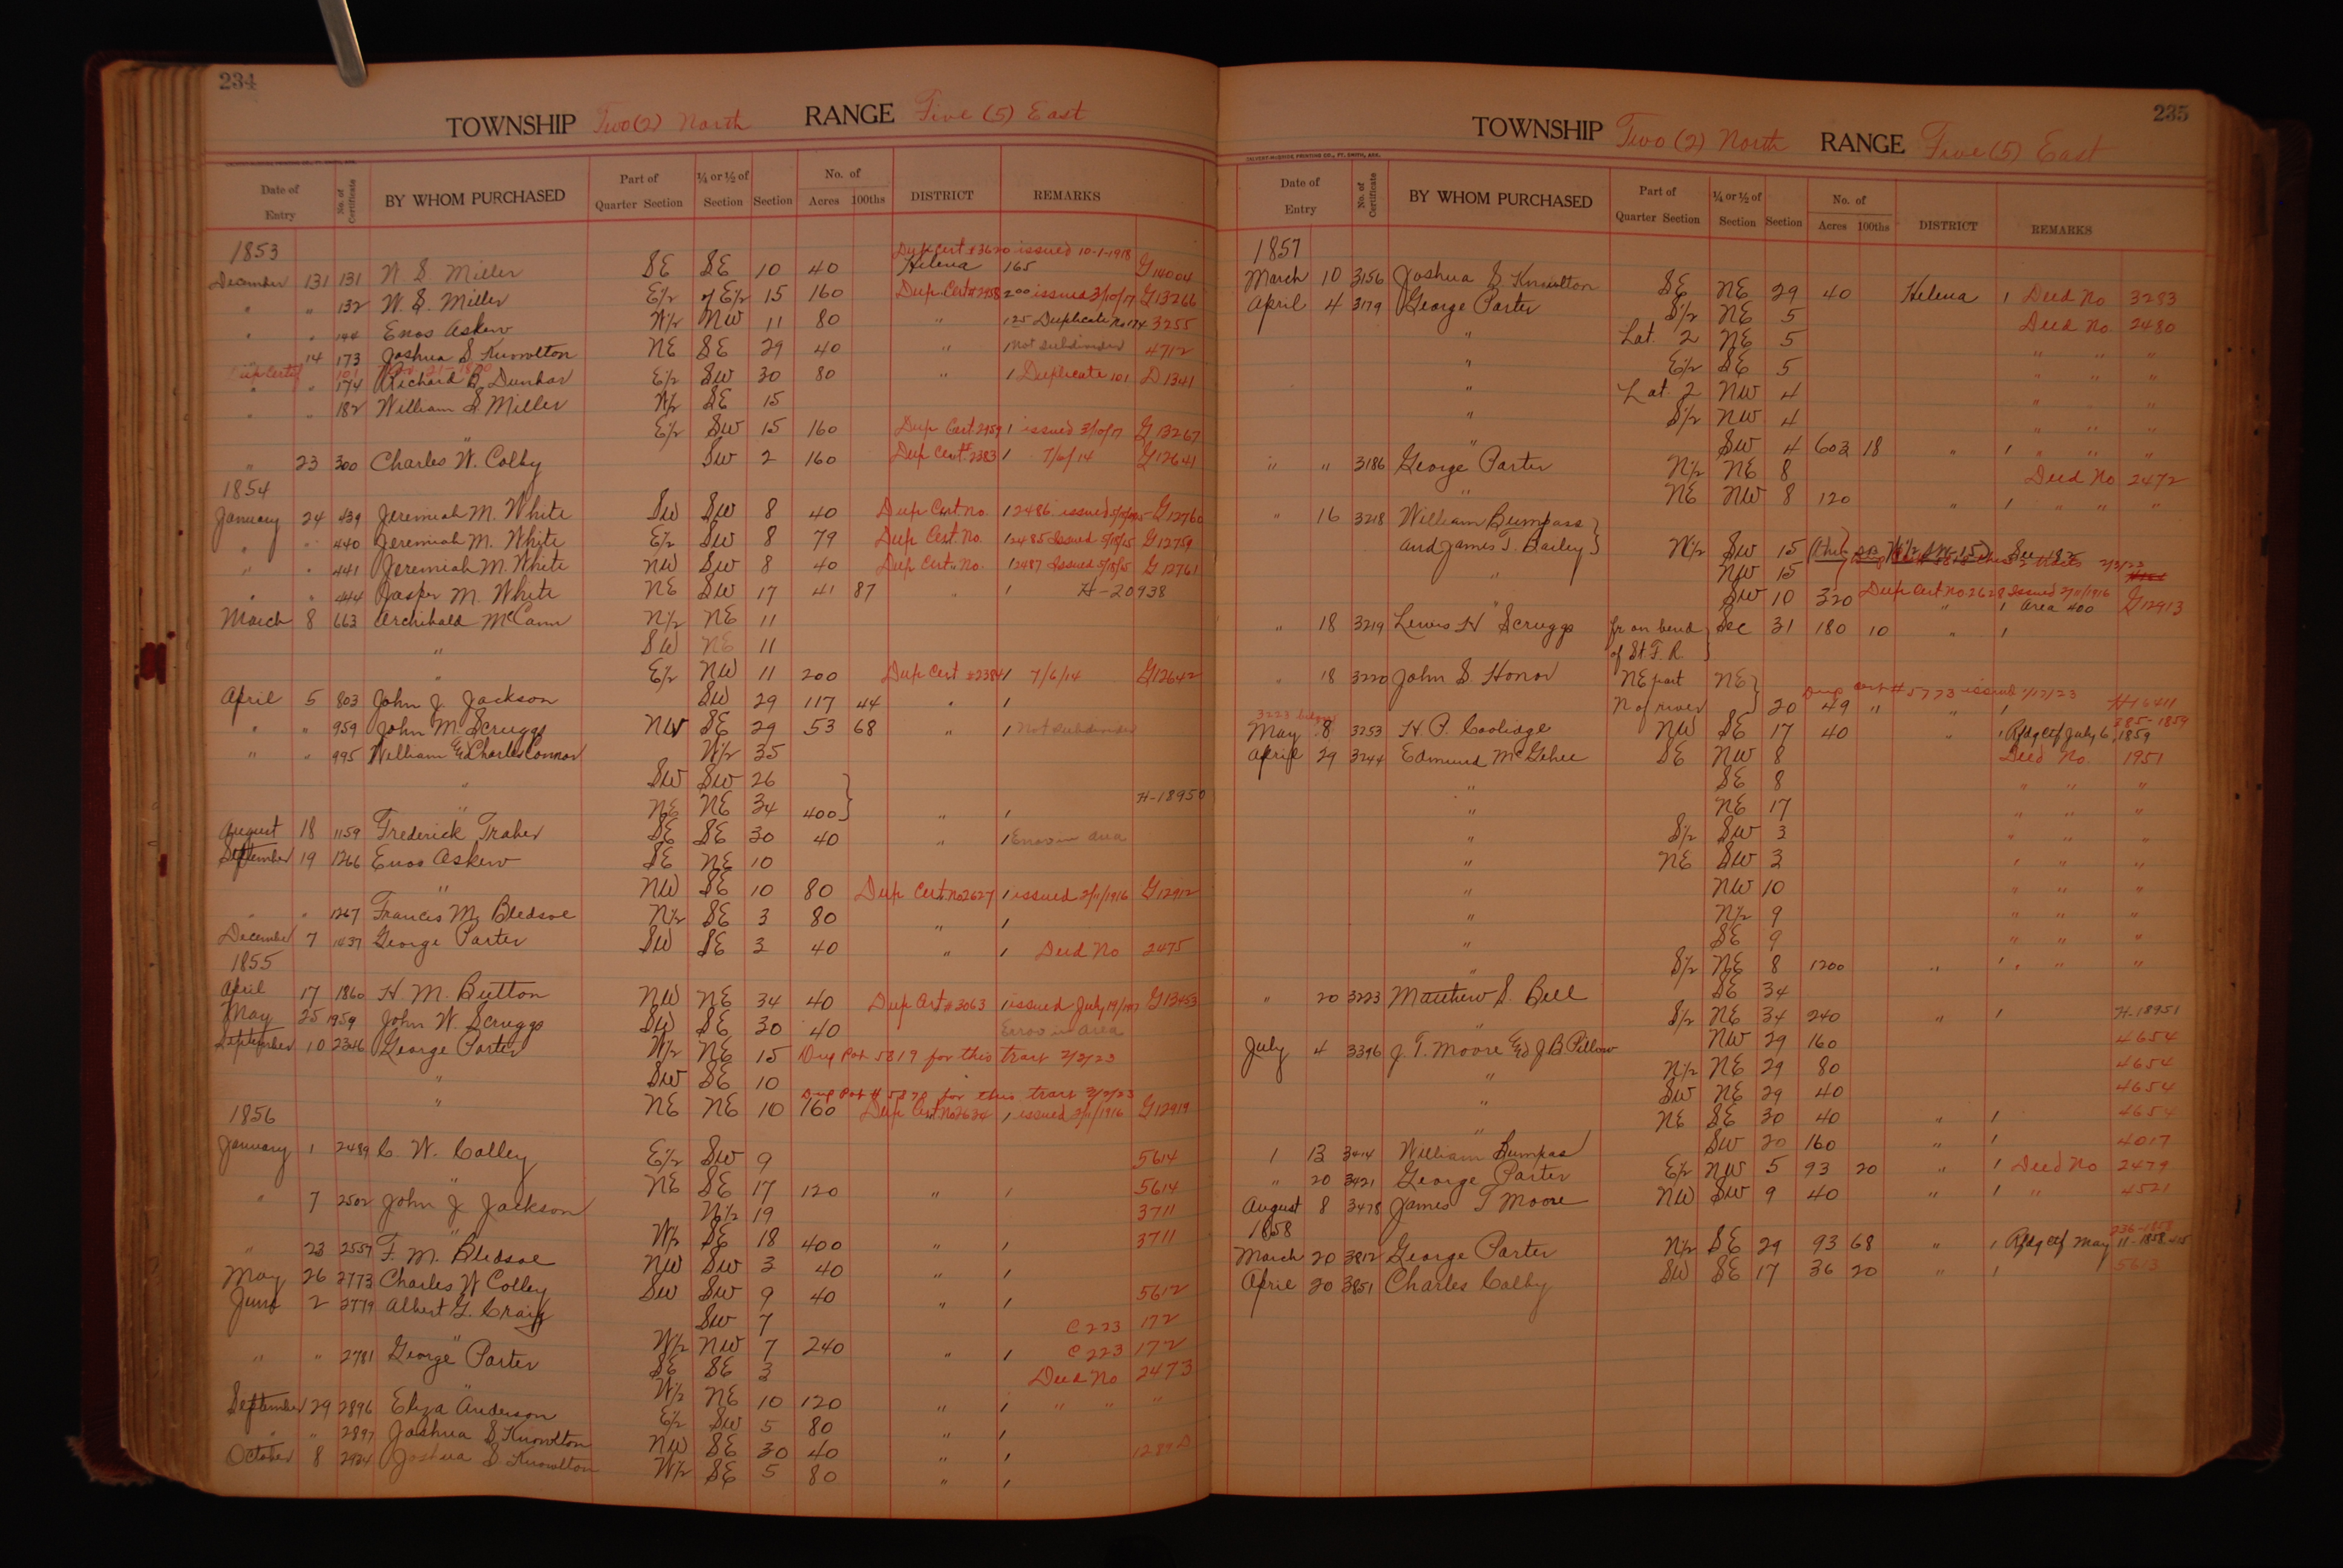 234
TOWNSHIP Two (2) North RANGE Five (5) East
CALVERT-McBRIDE PRINTING CO., FT. SMITH, ARK.
Date of Entry No. of Certificate BY WHOM PURCHASED Part of Quarter Section ¼ or ½ of Section Section No. of Acres 100ths DISTRICT REMARKS
1853 Dup. Cert #3620 issued 10-1-1918
December 131 131 N S. Miller SE SE 10 40 Helena 165 G14004
" " 132 W. S. Miller E½ of E½ 15 160 Dup. Cert #2958 200 issued 3/10/17 G13266
" " 144 Enos Askew W½ NW 11 80 " 125 Duplicate No 174 3255
" 14 173 Joshua S. Knowlton NE SE 29 40 " 1 Not subdivided 4712
Dup Cert 101 Nov. 21-1860
" " 174 Richard B. Dunbar E½ SW 30 80 " 1 Duplicate 101 D.1341
" " 182 William S. Miller W½ SE 15
" E½ SW 15 160 Dup Cert. 2959 1 issued 3/10/17 G13267
" 23 300 Charles W. Colby SW 2 160 Dup Cert # 2383 1 7/6/14 G12641
1854
January 24 439 Jeremiah M. White SW SW 8 40 Dup Cert No. 1 2486 issued 5/18/15 G12760
" " 440 Jeremiah M. White E½ SW 8 79 Dup Cert. No. 1 2485 Issued 5/18/15 G12759
" " 441 Jeremiah M. White NW SW 8 40 Dup Cert. No. 1 2487 Issued 5/18/15 G12761
" " 444 Jasper M. White NE SW 17 41 87 " 1 H-20938
March 8 663 Archibald McCann N½ NE 11
" SW NE 11
" E½ NW 11 200 Dup Cert #2384 1 7/6/14 G12642
April 5 803 John J. Jackson SW 29 117 44 " 1
" " 959 John M. Scruggs NW SE 29 53 68 " 1 Not subdivided
" " 995 William & Charles Connor W½ 35
" SW SW 26 H-18950
" NE NE 34 400 } " 1
August 18 1159 Frederick Traber SE SE 30 40 " 1 Error in area
September 19 1266 Enos Askew SE NE 10
" NW SE 10 80 Dup Cert. No 2627 1 issued 2/11/1916 G12912
" " 1267 Francis M. Bledsoe N½ SE 3 80 " 1
December 7 1437 George Porter SW SE 3 40 " 1 Deed No 2475
1855
April 17 1860 H. M. Button NW NE 34 40 Dup Cert #3063 1 issued July 19/1917 G13453
May 25 1959 John W. Scruggs SW SE 30 40 Error in area
September 10 2346 George Porter W½ NE 15 Dup Pat 5819 for this tract 2/2/23
" SW SE 10
Dup Pat # 5820 for this tract 2/2/23
" NE NE 10 160 Dup Cert. No 2634 1 issued 2/11/1916 G12919
1856
January 1 2489 C. W. Colley E½ SW 9 5614
" NE SE 17 120 " 1 5614
" 7 2502 John J. Jackson N½ 19 3711
" W½ SE 18 400 " 1 3711
" 23 2557 F. M. Bledsoe NW SW 3 40 " 1
May 26 2773 Charles W Colley SW SW 9 40 " 1 5612
June 2 2779 Albert G. Craig SW 7 C 223 172
" W½ NW 7 240 " 1 C 223 172
" " 2781 George Porter SE SE 3 Deed No 2473
" W½ NE 10 120 " 1 " " "
September 29 2896 Eliza Anderson E½ SW 5 80 " 1
" " 2897 Joshua S Knowlton NW SE 30 40 " 1 1289D
October 8 2924 Joshua S Knowlton W½ SE 5 80 " 1
235
TOWNSHIP Two (2) North RANGE Five (5) East
CALVERT-McBRIDE PRINTING CO., FT. SMITH, ARK.
Date of Entry No. of Certificate BY WHOM PURCHASED Part of Quarter Section ¼ or ½ of Section Section No. of Acres 100ths DISTRICT REMARKS
1857
March 10 3156 Joshua S. Knowlton SE NE 29 40 Helena 1 Deed No 3283
April 4 3179 George Porter S½ NE 5 Deed No. 2480
" Lot. 2 NE 5 " " "
" E½ SE 5 " " "
" Lot. 2 NW 4 " " "
" S½ NW 4 " " "
" SW 4 602 18 " 1 " " "
" " 3186 George Porter N½ NE 8 Deed No 2472
" NE NW 8 120 " 1 " " "
" 16 3218 William Bumpass }
and James T. Bailey } W½ SW 15
" NW 15 2/2/23
" SW 10 320 Dup Cert No. 2628 Issued 2/11/1916 " 1 Area 400 G12913
" 18 3219 Lewis H Scruggs fr on bend } Sec 31 180 10 " 1
of St. F. R }
" 18 3220 John S. Honor NE part NE } Dup Cert # 5773 issued 1/17/23 H16411
N of river } 20 49 " " 1
3223 885-1859
May 8 3253 H. P. Coolidge NW SE 17 40 " 1 Rfdg ctf July 6, 1859
April 29 3244 Edmund McGehee SE NW 8 Deed No. 1951
" SE 8 " " "
" NE 17 " " "
" S½ SW 3 " " "
" NE SW 3 " " "
" NW 10 " " "
" N½ 9 " " "
" SE 9 " " "
" S½ NE 8 1200 " 1 " " "
" 20 3223 Matthew S. Bell SE 34
" S½ NE 34 240 " 1 H-18951
July 4 3396 J. T. Moore & J B. Pillow NW 29 160 4654
" N½ NE 29 80 4654
" SW NE 29 40 4654
" NE SE 30 40 " 1 4654
1 13 3414 William Bumpas SW 20 160 " 1 4017
" 20 3421 George Porter E½ NW 5 93 20 " 1 Deed No 2479
August 8 3478 James T Moore NW SW 9 40 " 1 " 4521
1858 236-1858
March 20 3812 George Porter N½ SE 29 93 68 " 1 Rfdg ctf May 11-1858
April 20 3851 Charles Colby SW SE 17 36 20 " 1 5613